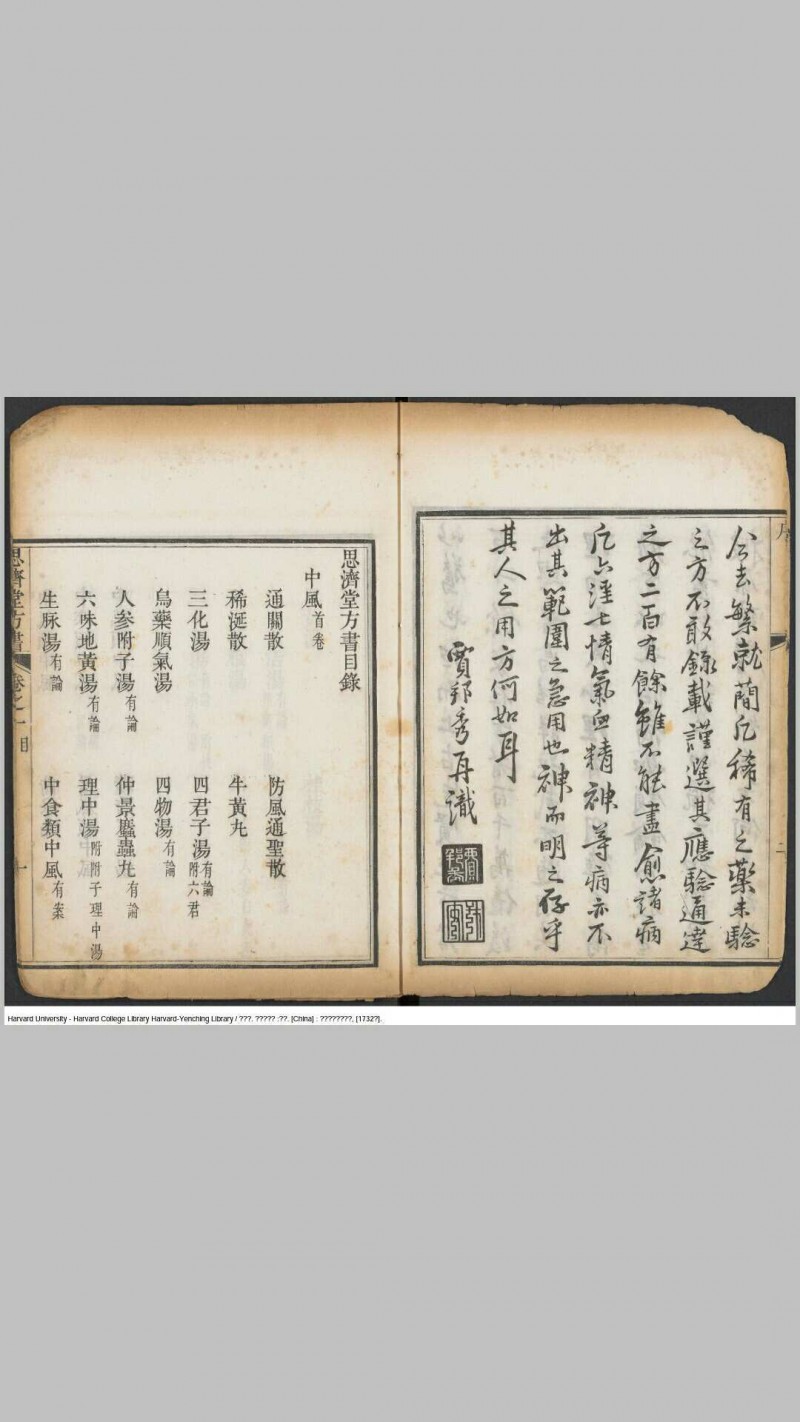 今去繁就蕳凡稀有之藥未驗
之方不敢錄載謹選其應驗通達
之方二百有餘雖不能盡愈諸病
凡六淫七情氣血精神等病亦不
出其範圍之急用也神而明之存乎
其人之用方何如耳
賈邦秀再識
思濟堂方書目錄
中風首卷
通關散 防風通聖散
稀涎散 牛黃丸
三化湯 四君子湯有論附六君
烏藥順氣湯 四物湯有論
人参附子湯有論 仲景䗪蟲丸有論
六味地黃湯有論 理中湯附附子理中湯
生脉湯有論 中食類中風有案
思濟堂方書 卷之一目 一
Harvard University - Harvard College Library Harvard-Yenching Library / ???. ????? :??. [China] : ????????, [1732?].